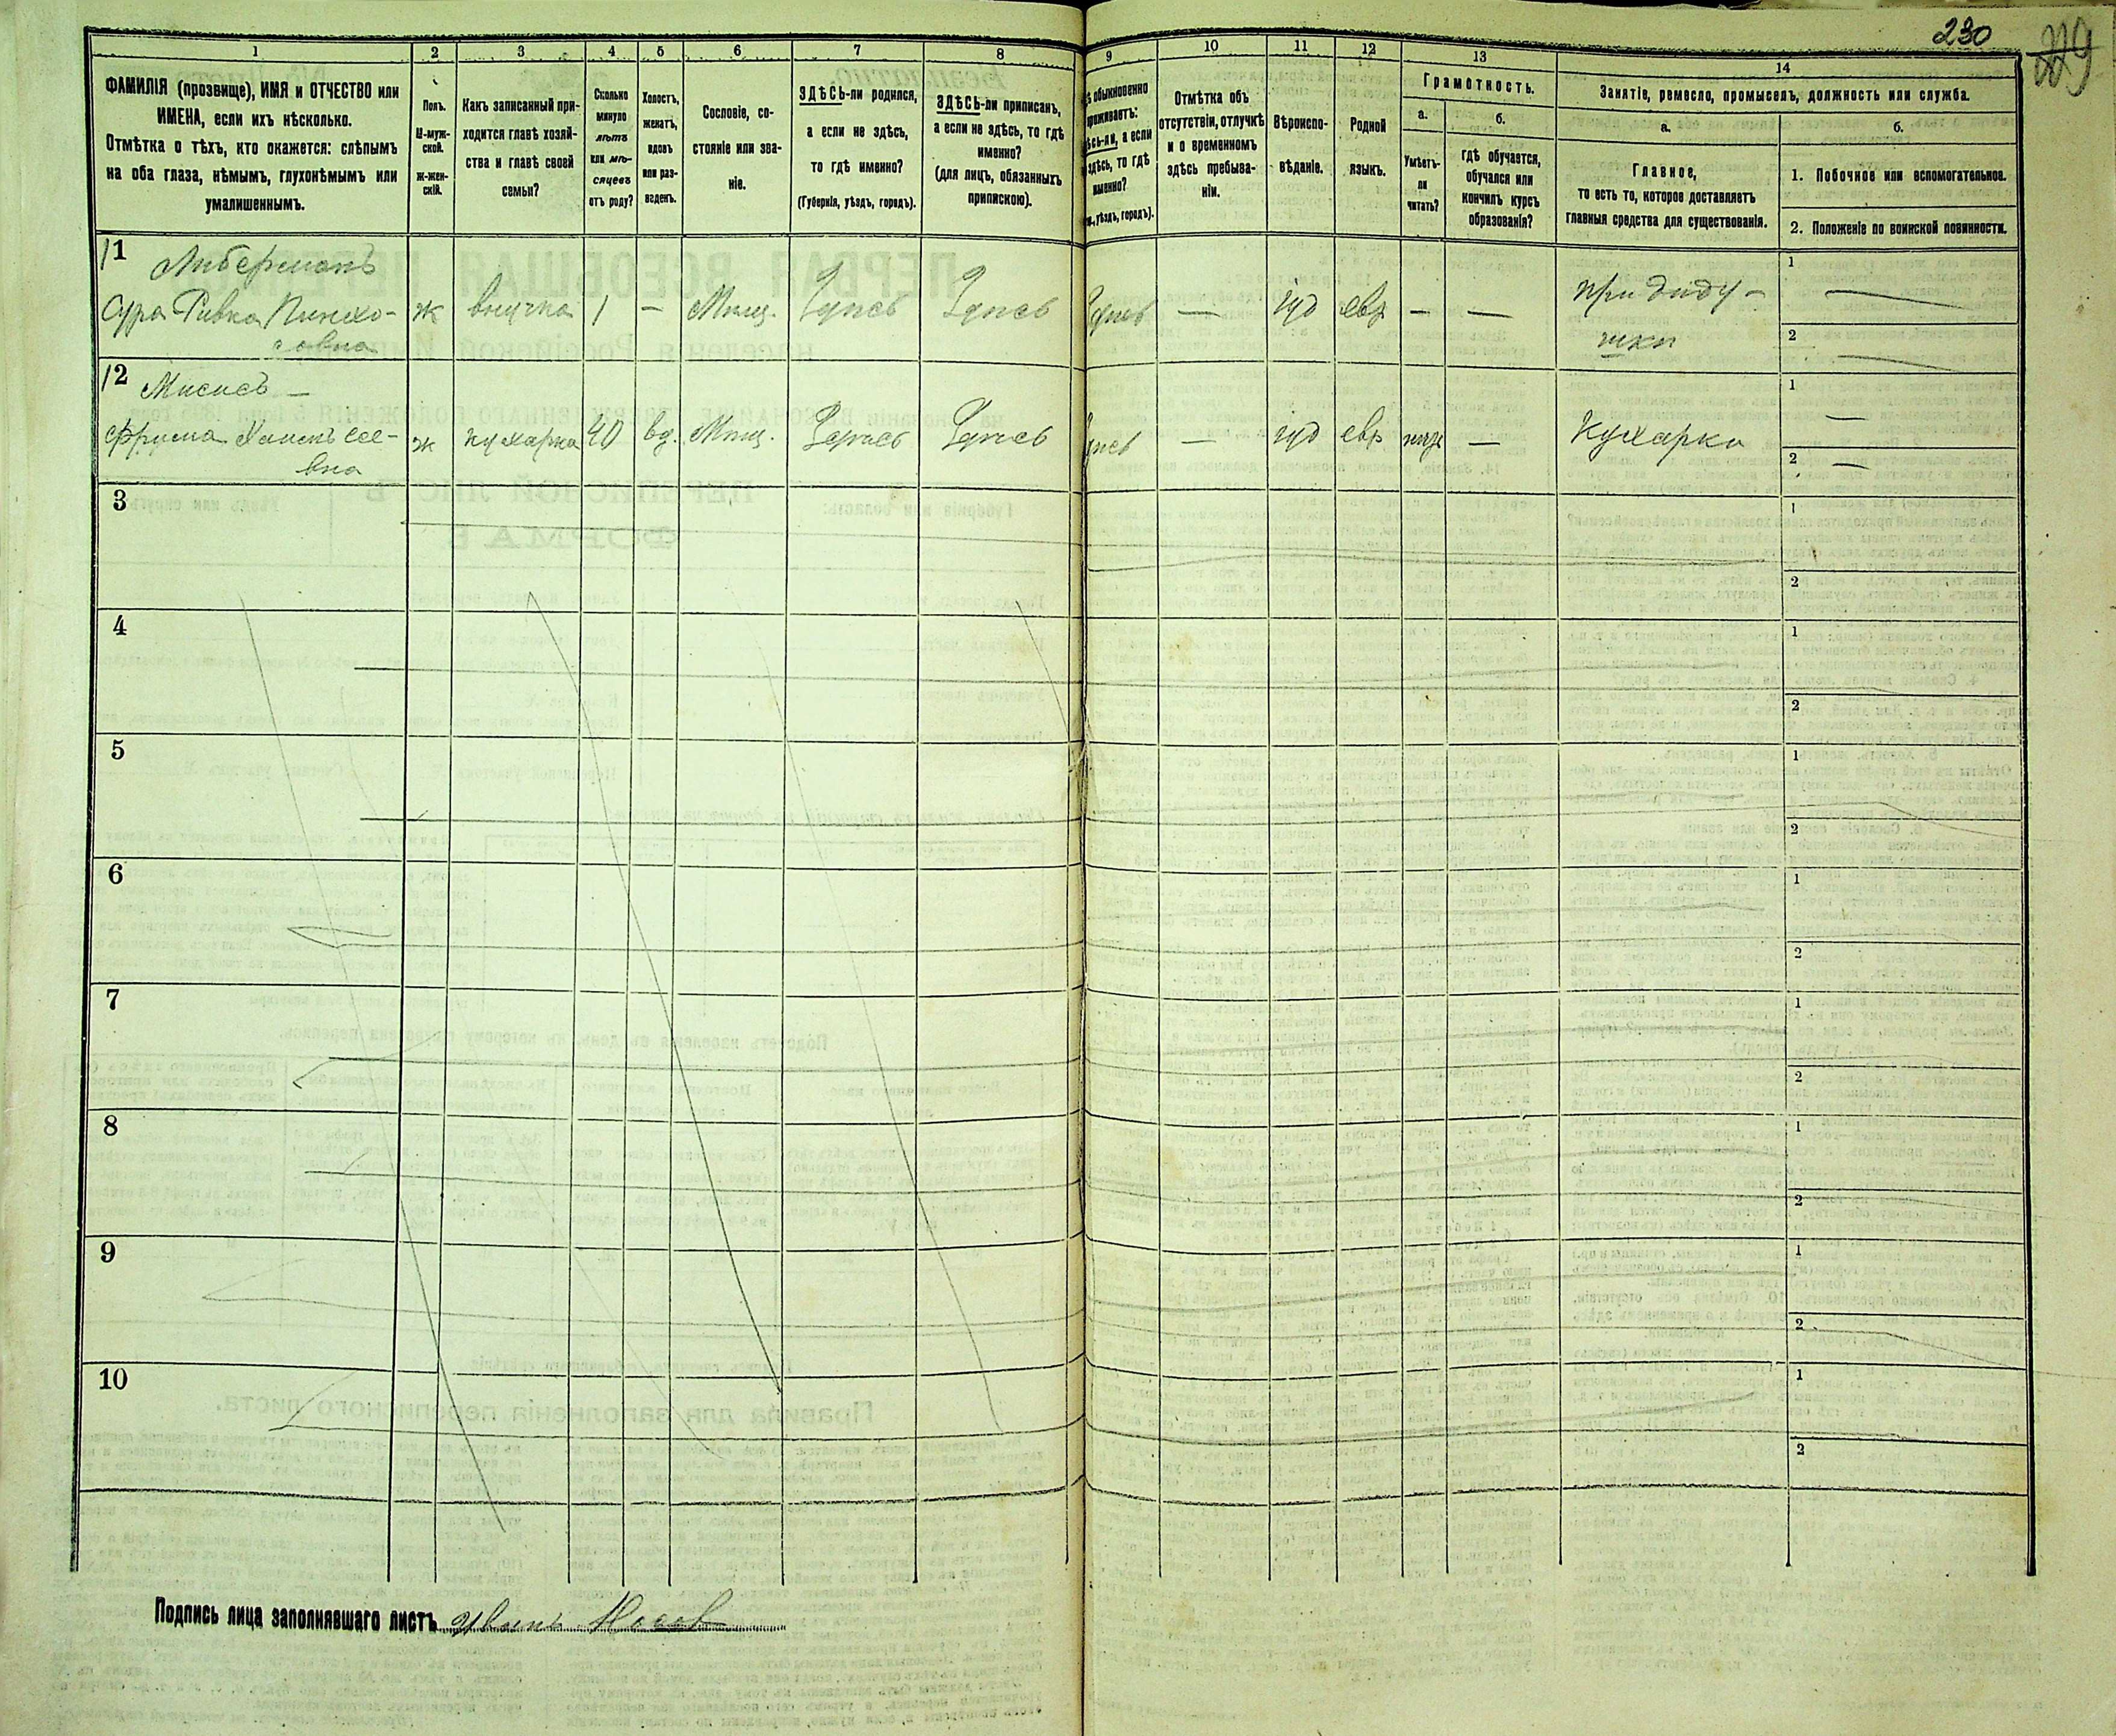 230
229
1
2
3
4
5
6
7
8
9
10
11
12
13
14
ФАМИЛІЯ (прозвище), ИМЯ и ОТЧЕСТВО или
ИМЕНА, если ихъ нѣсколько.
Отмѣтка о тѣхъ, кто окажется: слѣпымъ
на оба глаза, нѣмымъ, глухонѣмымъ или
умалишеннымъ.
Полъ.
М-муж-
ской.
ж-жен-
скій.
Какъ записанный при-
ходится главѣ хозяй-
ства и главѣ своей
семьи?
Сколько
минуло
лѣтъ
или мѣ-
сяцевъ
отъ роду?
Холостъ,
женатъ,
вдовъ
или раз-
веденъ.
Сословіе, со-
стояніе или зва-
ніе.
ЗДѢСЬ-ли родился,
а если не здѣсь,
то гдѣ именно?
(Губернія, уѣздъ, городъ).
ЗДѢСЬ-ли приписанъ,
а если не здѣсь, то гдѣ
именно?
(для лицъ, обязанныхъ
припискою).
обыкновенно
проживаетъ:
а если
здѣсь, то гдѣ
именно?
уѣздъ, городъ).
Отмѣтка объ
отсутствіи, отлучкѣ
и о временномъ
здѣсь пребыва-
ніи.
Вѣроиспо-
вѣданіе.
Родной
языкъ.
Грамотность.
а.
Умѣетъ-
ли
читать?
б.
гдѣ обучается,
обучался или
кончилъ курсъ
образованія?
Занятіе, ремесло, промыселъ, должность или служба.
а.
Главное,
то есть то, которое доставляетъ
главныя средства для существованія.
б.
1. Побочное или вспомогательное.
2. Положеніе по воинской повинности.
11
Либерманъ
Сура Ривка Пинхо-
совна
ж
внучка
1
—
Мѣщ.
Здѣсь
Здѣсь
Здѣсь
—
іуд
евр
—
—
при дѣду-
шки
1
—
2
—
12
Фрума
вна
ж
кухарка
40
вд.
Мѣщ.
Здѣсь
Здѣсь
Здѣсь
—
іуд
евр
—
Кухарка
1
—
2
—
3
1
2
4
1
2
5
1
2
6
1
2
7
1
2
8
1
2
9
1
2
10
1
2
Подпись лица заполнявшаго листъ